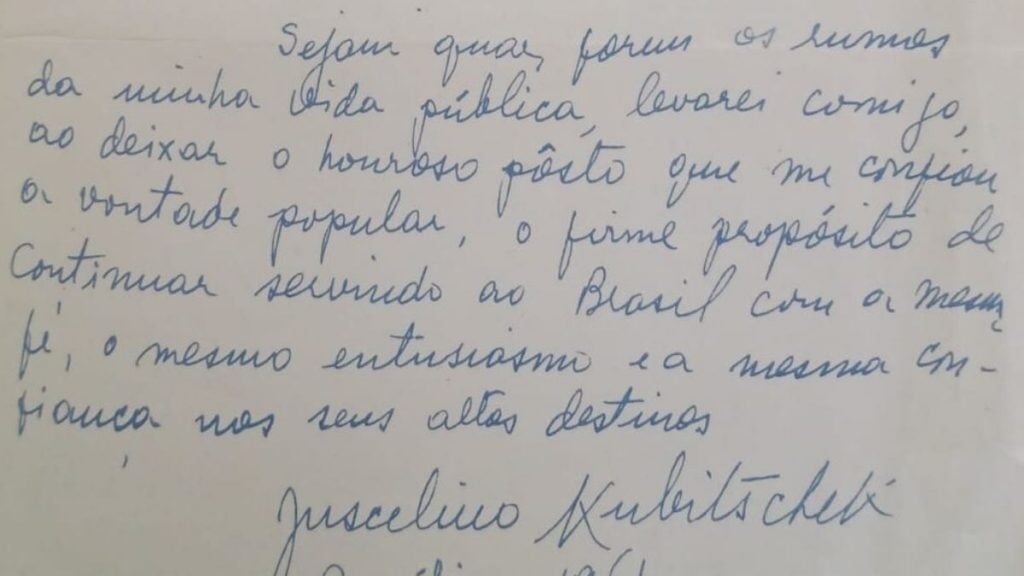 Sejam quais forem os rumos
da minha vida pública, levarei comigo,
ao deixar o honroso pôsto que me confiou
a vontade popular, o firme propósito de
Continuar servindo ao Brasil com a mesma
fé, o mesmo entusiasmo e a mesma con-
fiança nos seus altos destinos
Juscelino Kubitschek